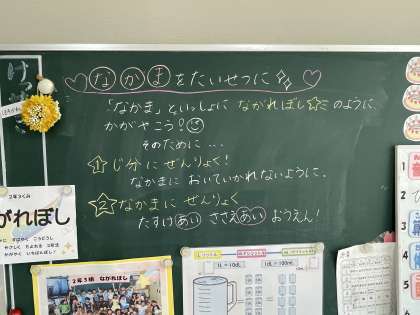 なかまをたいせつに
「なかま」といっしょに ながれぼし☆ミ のように、
かがやこう!
そのために・・・
1 じ分にぜんりょく!
なかまに おいていかれないように。
2 なかまに ぜんりょく
たすけあい ささえあい おうえん!
2年3くみ
がれぼし
2年3組 ながれぼし
1L=10dL
1L=1000mL
1.
2.
3.